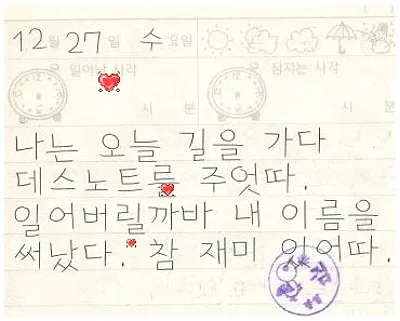 12월 27일 수 요일
일어난 시각 잠자는 시각
시 분 시 분
나는 오늘 길을 가다
데스노트를 주엇따.
일어버릴까바 내 이름을
써났다. 참 재미 있어따.